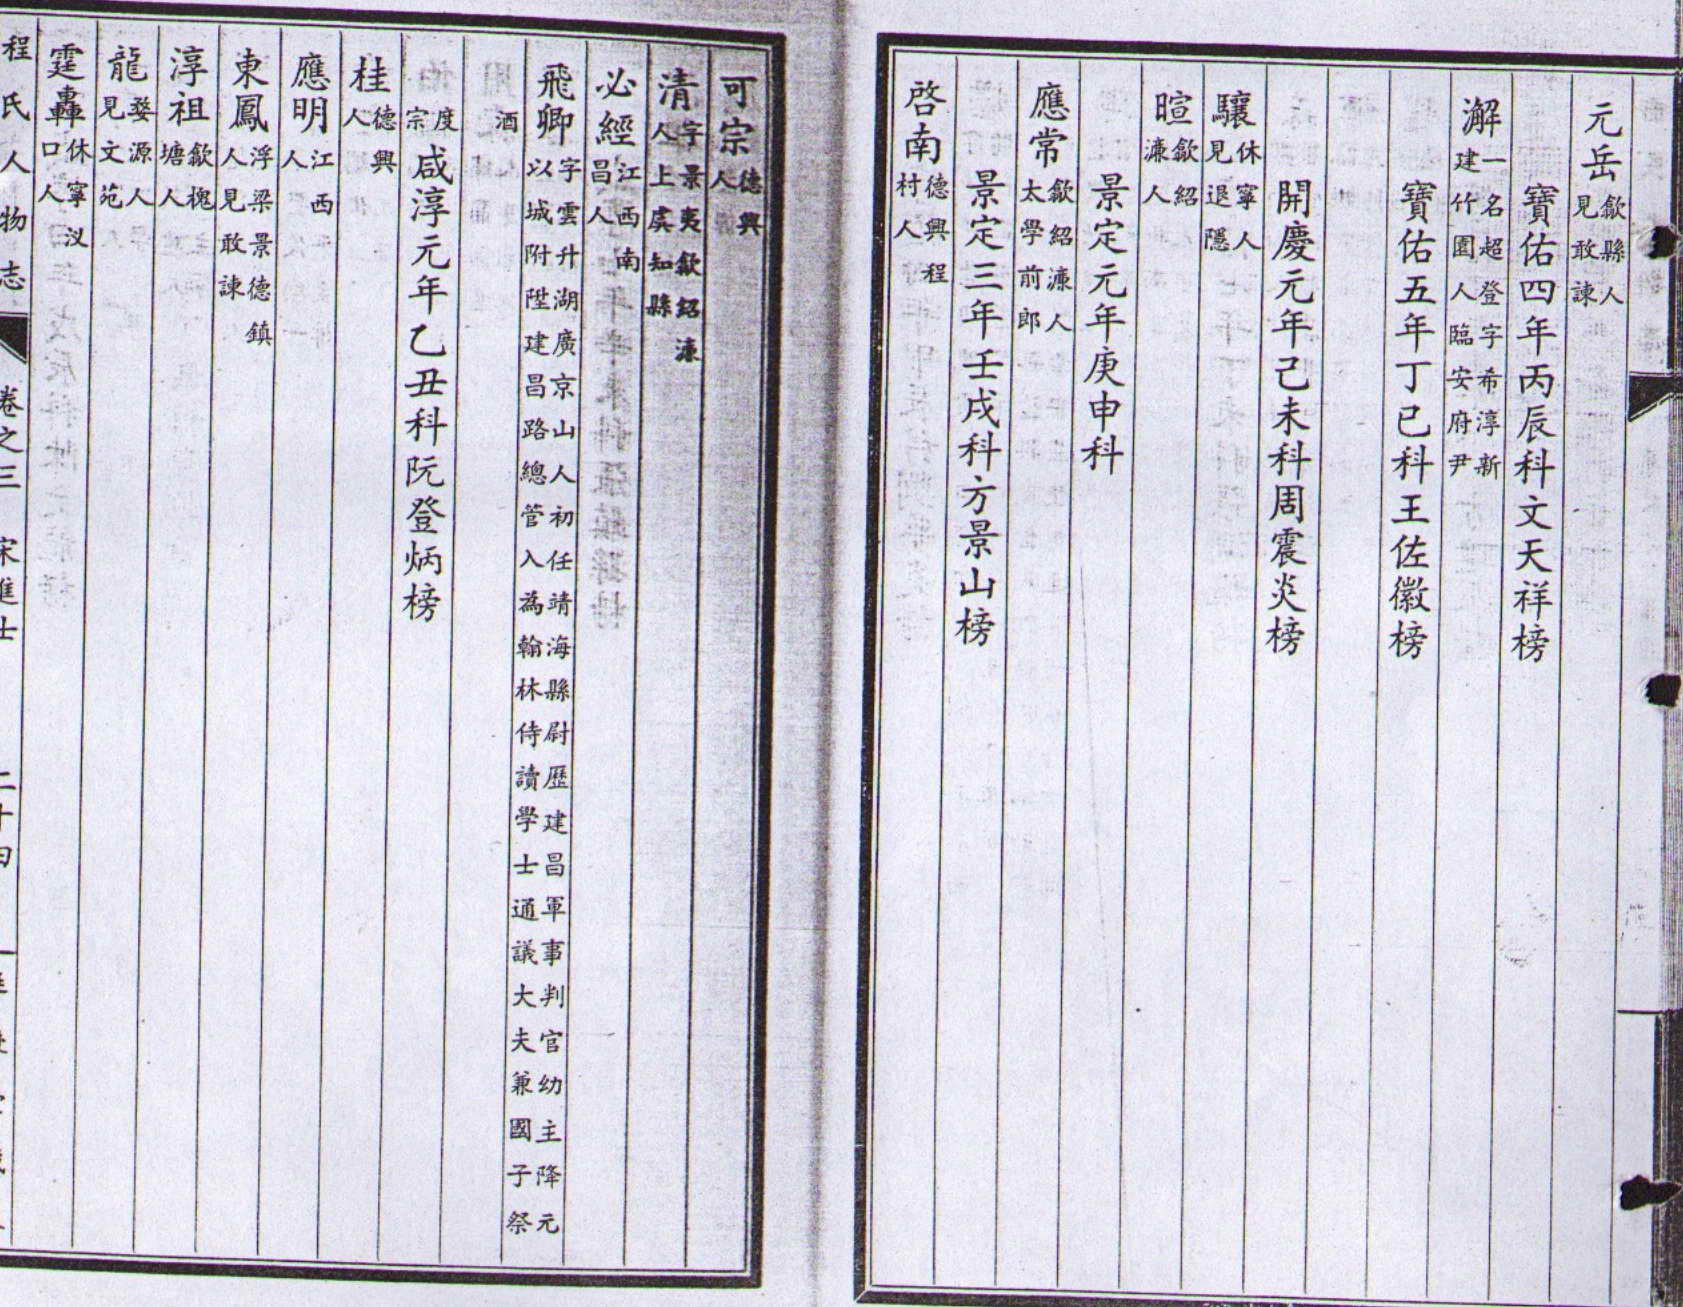 元岳歙縣人見敢諫
寶佑四年丙辰科文天祥榜
澥一名超登字希淳新建竹園人臨安府尹
寶佑五年丁巳科王佐徽榜
開慶元年己未科周震炎榜
驤休寧人見退隱
暄歙紹濂人
景定元年庚申科
應常歙紹濂人太學前郎
景定三年壬戌科方景山榜
啓南德興程村人
可宗德興人
清字景夷歙紹濂人上虞知縣
必經江西南昌人
飛卿字雲升湖廣京山人初任靖海縣尉歷建昌軍事判官幼主降元以城附陞建昌路總管入為翰林侍讀學士通議大夫兼國子祭
酒
度宗咸淳元年乙丑科阮登炳榜
桂德興人
應明江西人
東鳳浮梁景德鎮人見敢諫
淳祖歙槐塘人
龍婺源人見文苑
霆轟休寧汊口人
程氏人物志 卷之三 宋進士 二十四